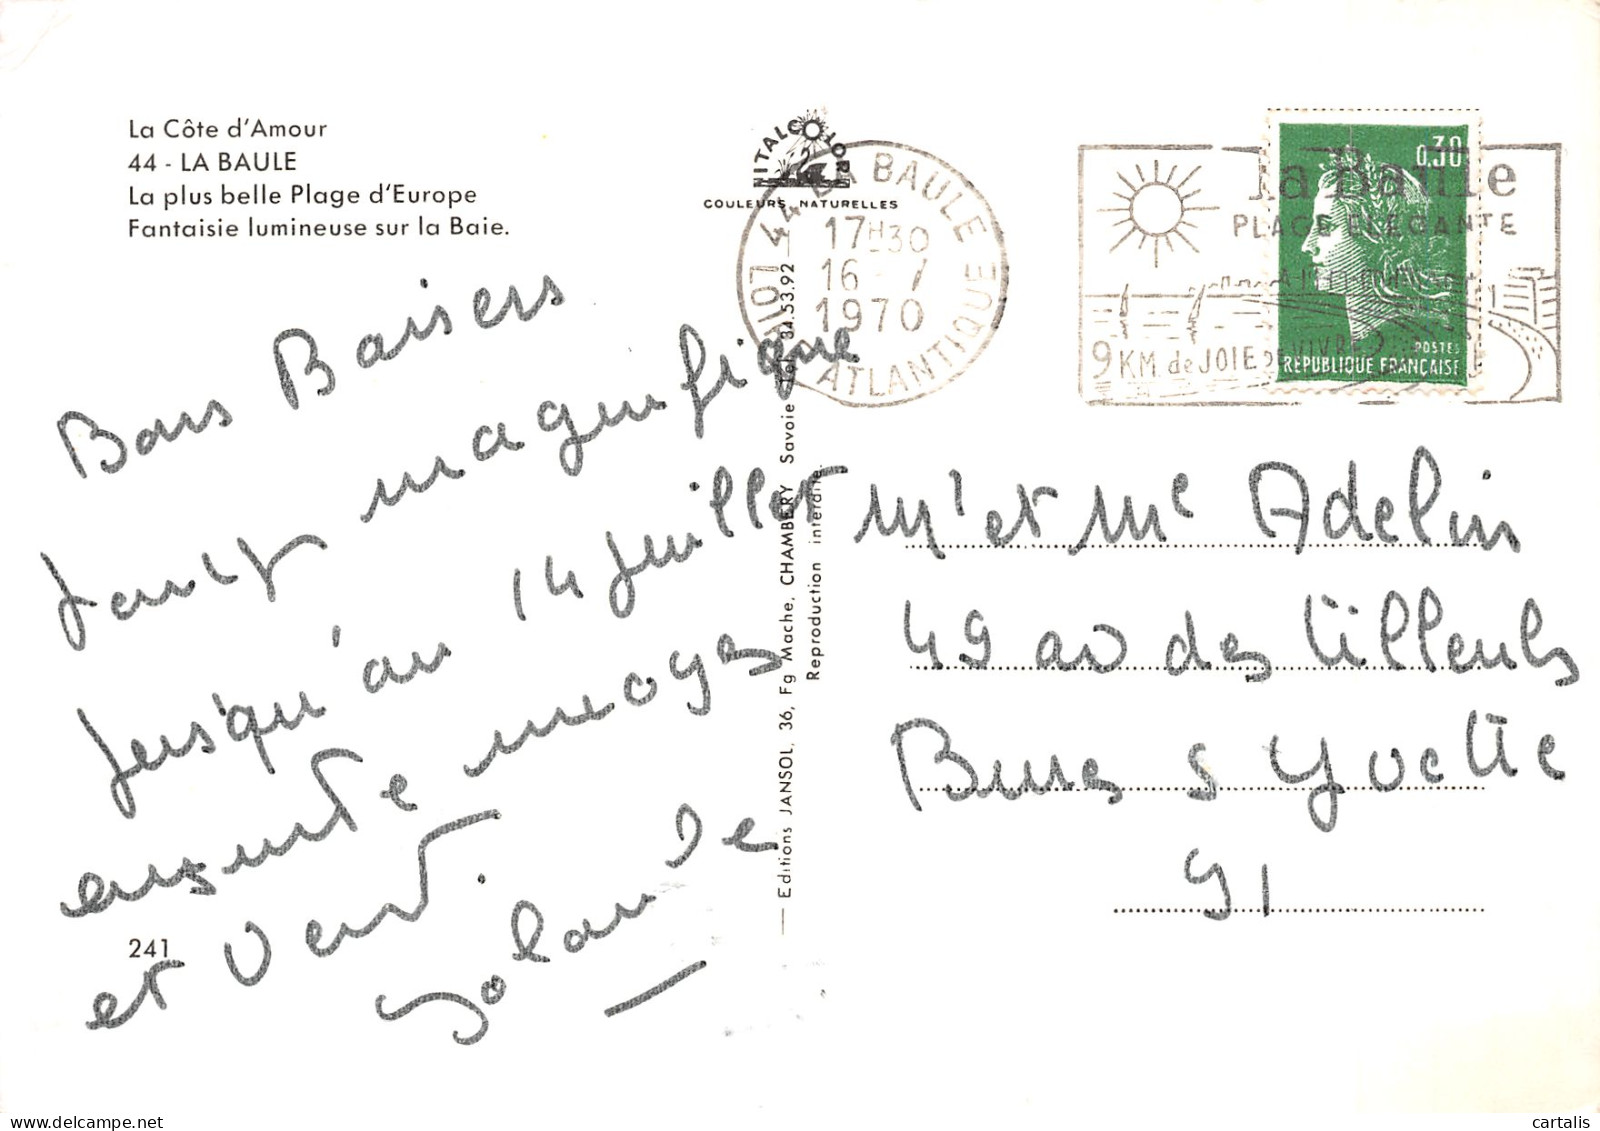 La Côte d'Amour
44 - LA BAULE
La plus belle Plage d'Europe
Fantaisie lumineuse sur la Baie.
Bons Baisers
temps magnifique
jusqu'au 14 juillet
ensuite nuages
et vent.
Yolande
241
ITALCOLOR
COULEURS NATURELLES
Editions JANSOL, 36, Fg Mache, CHAMBERY Savoie Tel. 34.53.92
Reproduction interdite.
44 LA BAULE
17H30
16 - 7
1970
LOIRE ATLANTIQUE
la Baule
PLAGE ELEGANTE
9 KM de JOIE DE VIVRE
0,30
POSTES
REPUBLIQUE FRANÇAISE
Mr et Me Adelin
49 av des Tilleuls
Bures s Yvette
91
cartalis